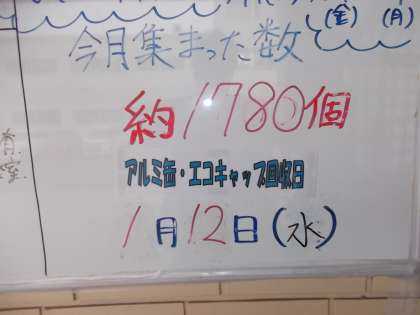 (金) (月)
今月集まった数
約1780個
アルミ缶・エコキャップ回収日
1月12日(水)
室